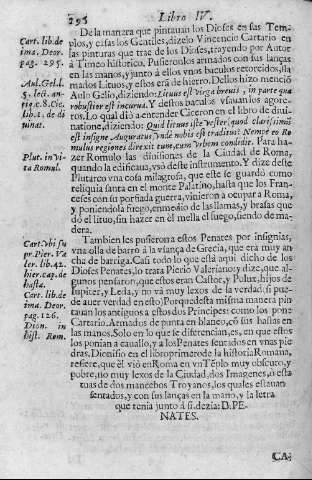 295 Libro IV.
De la manera que pintauan los Dioses en sus Tem-
plos, y casas los Gentiles, dizelo Vincencio Cartario en
las pinturas que trae de los Dioses, trayendo por Autor
á Timeo historico. Pusieronlos armados con sus lanças
en las manos, y junto á ellos vnos baculos retorcidos, lla-
mados Lituos, y estos era de hierro. Dellos hizo menció
Aulo Gelio, diziendo: Lituus est virga breuis, in parte qua
robustior est incurua. Y destos baculos vsauan los agore-
ros. Lo qual dió a entender Ciceron en el libro de diui-
natione, diziendo: Quid lituus iste vester, quod clarissimū
est insigne Auguratus, vnde vobis est traditus? Nempè eo Ro
mulus regiones direxit tunc, cum vrbem condidit. Para ha-
zer Romulo las diuisiones de la Ciudad de Roma,
quando la edificaua, vsó deste instrumento. Y dize deste
Plutarco vna cosa milagrosa, que este se guardó como
reliquia santa en el monte Palatino, hasta que los Fran-
ceses con su porfiada guerra, vinieron a ocupar a Roma,
y poniendola fuego, enmedio de las llamas, y brasas que
dó el lituo, sin hazer en él mella el fuego, siendo de ma-
dera.
Tambien les pusieron a estos Penates por insignias,
vna olla de barro á la vsança de Grecia, que era muy an-
cha de barriga. Casi todo lo que està aqui dicho de los
Dioses Penates, lo trata Pierio Valeriano; y dize, que al-
gunos pensaron, que estos eran Castor, y Pulux, hijos de
Iupiter, y Leda, y no va muy lexos de la verdad, si pue-
de auer verdad en esto; Porque desta misma manera pin-
tauan los antiguos a estos dos Principes: como los pone
Cartario. Armados de punta en blanco, cõ sus hastas en
las manos. Solo en lo que se diferencian, es, en que estos
los ponian a cauallo, y a los Penates sentados en vnas pie
dras. Dionisio en el libro primero de la historia Romana,
refiere, que él vió en Roma en vn Tẽplo muy obscuro, y
pobre, no muy lexos de la Ciudad, dos Imagenes, ó esta
tuas de dos mancebos Troyanos, los quales estauan
sentados, y con sus lanças en la mano, y la letra
que tenia junto á si, dezia: D. PE-
NATES.
CA-
Cart. lib. de
ima. Deor.
pag. 295.
Aul. Gel. l.
Plut. in vi
ta Romul.
Cart. vbi su
pr. Pier. Va
ler. lib. 42.
hier. cap. de
hasta.
Cart. lib. de
ima. Deor.
pag. 126.
Dion. in
hist. Rom.